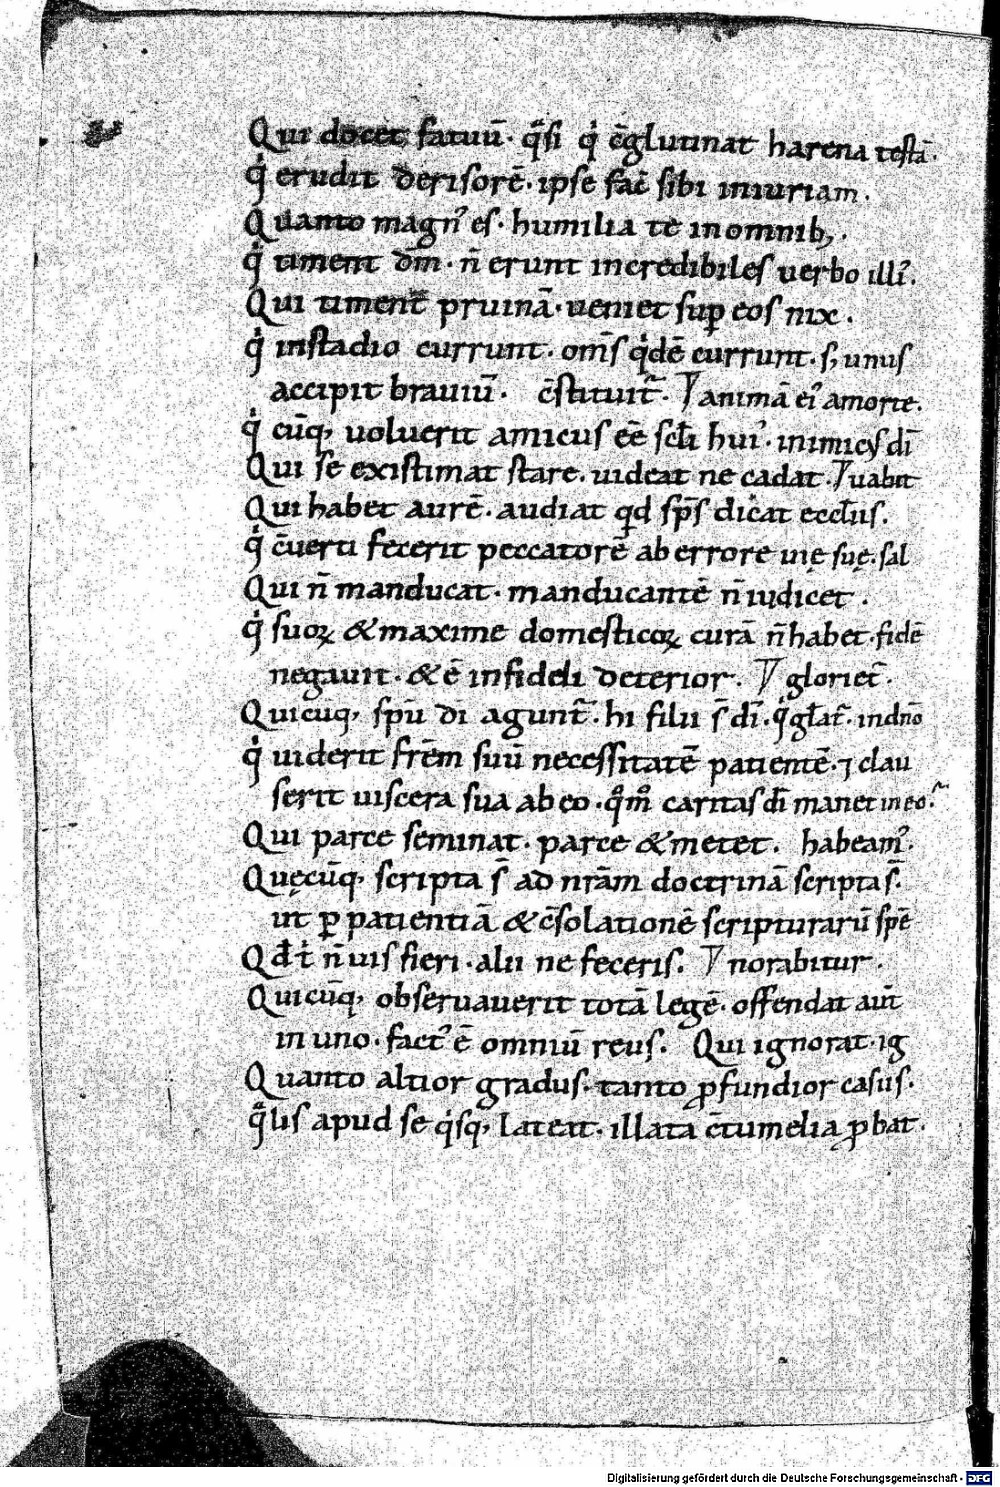 Qui docet fatuū· q̄ͣsi q̇ c̄glutinat harena testā·
q̇ erudit derisorē· ipse fac̄ sibi iniuriam.
Quanto magnꝰ es· humilia te in omnibꝫ·
q̇ timent dm̄· n̄ erunt incredibiles verbo illiꝰ.
Qui timent pruinā· ueniet sup eos nix.
q̇ in stadio currunt· oms̄ q̇dē currunt· sꝫ unus
accipit brauiū· c̄stituit᷑· ⁊ animā eiꝰ a morte.
q̇ cūqꝫ uoluerit amicus eē scl̄i huiꝰ· inimicꝰ di̅
Qui se existimat stare. uideat ne cadat.
Qui habet aurē· audiat qd sps̄ dicat eccl̄iis.
q̇ c̄uerti fecerit peccatorē ab errore uię suę· sal
Qui n̄ manducat· manducantē n̄ iudicet.
q̇ suoꝝ & maxime domesticoꝝ curā n̄ habet· fidē
negauit· & ē infideli deterior. gloriet᷑·
Quicūqꝫ spū di aguntᷓ· hi filii s̄ di̅· q̇ gl̄at᷑· in dn̄o
q̇ uiderit frēm suū necessitatē patientē· ⁊ clau
serit uiscera sua ab eo· qͦmͦ caritas di̅ manet in eo·
Qui parce seminat· parce & metet. habeamꝰ·
Quęcūqꝫ scripta s̄ ad nrām doctrinā scripta s̄·
ut ꝑ patientiā & c̄solationē scripturarū spē
Qđ ṫ n̄ uis fieri· alii ne feceris. norabitur.
Quicūqꝫ obseruauerit totā legē· offendat aut̄
in uno· factꝰ ē omniū reus. Qui ignorat· ig
Quanto altior gradus· tanto ꝓfundior casus·
qͣlis apud se q̇sqꝫ lateat· illata c̄tumelia ꝓbat·
Digitalisierung gefördert durch die Deutsche Forschungsgemeinschaft - DFG